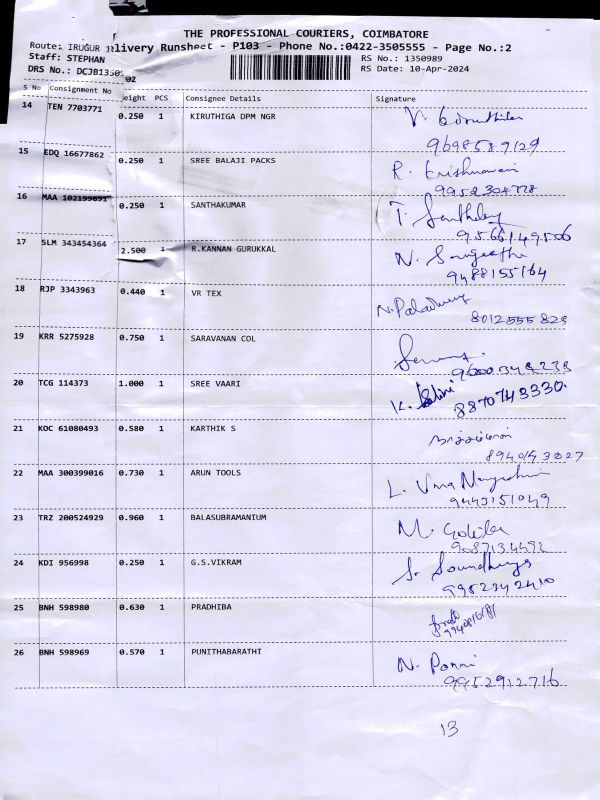 THE PROFESSIONAL COURIERS, COIMBATORE
Route: IRUGUR livery Runsheet - P103 - Phone No.:0422-3505555 - Page No.:2
Staff: STEPHAN RS No.: 1350989
DRS No.: RS Date: 10-Apr-2024
S No Consignment No eight PCS Consignee Details Signature
14 TEN 7703771 0.250 1 KIRUTHIGA DPM NGR
9698589129
15 EDQ 16677862 0.250 1 SREE BALAJI PACKS R. Krishnaveni
9952304778
16 MAA 102199691 0.250 1 SANTHAKUMAR T.
9566149506
17 SLM 343454364 2.500 1 R.KANNAN GURUKKAL N. Sangeetha
9488155164
18 RJP 3343963 0.440 1 VR TEX
8012555829
19 KRR 5275928 0.750 1 SARAVANAN COL
9600348238
20 TCG 114373 1.000 1 SREE VAARI K.
8870743330.
21 KOC 61080493 0.580 1 KARTHIK S
22 MAA 300399016 0.730 1 ARUN TOOLS L. Uma
9443151049
23 TRZ 200524929 0.960 1 BALASUBRAMANIUM M.
9087134492
24 KDI 956998 0.250 1 G.S.VIKRAM S. Soundharya
9952342410
25 BNH 598980 0.630 1 PRADHIBA
26 BNH 598969 0.570 1 PUNITHABARATHI N. Ponni
9952912716
13